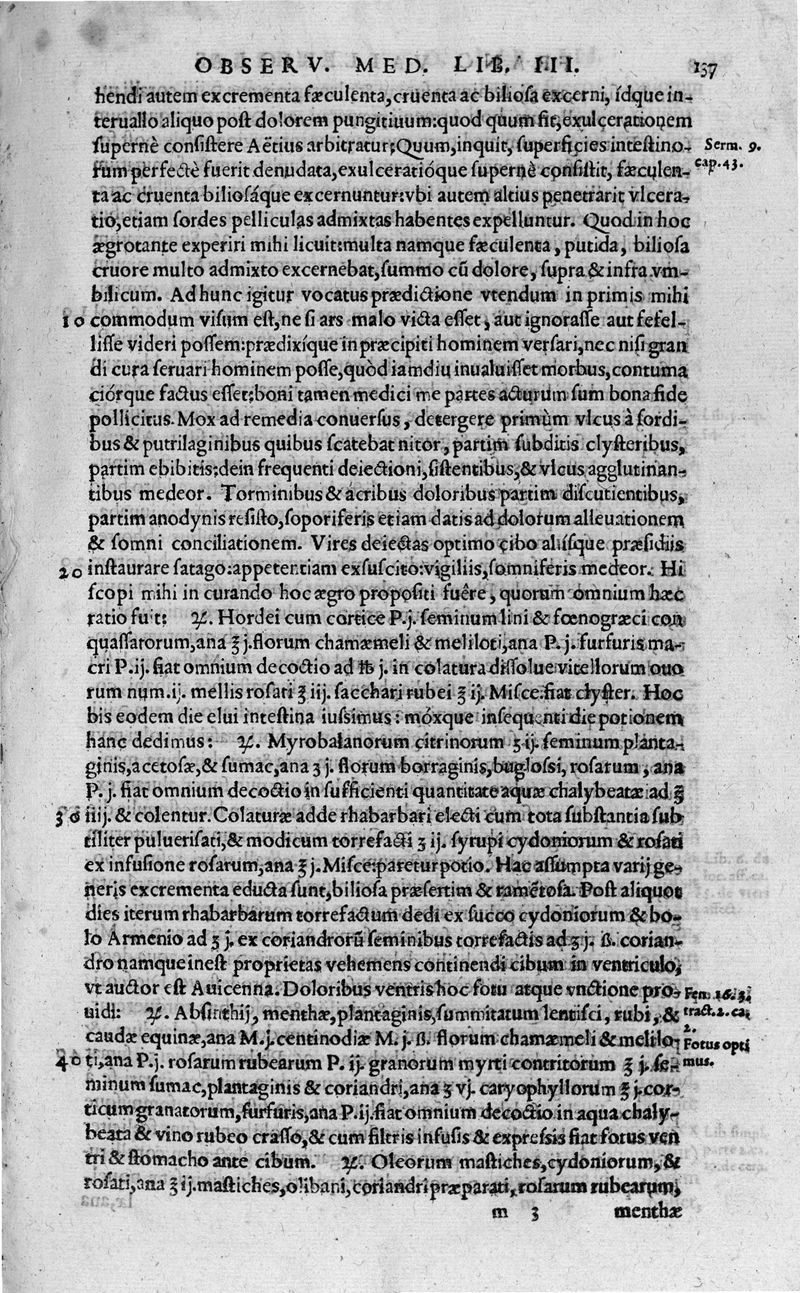 OBSERV. MED. LIB. III. 137
hendi autem excrementa fæculenta,cruenta ac bilioſa excerni, ídque in-
teruallo aliquo poſt dolorem pungitiuum:quod quum fit,exulcerationem
ſupernè conſiſtere Aëtius arbitratur;Quum,inquit, ſuperficies inteſtino-
Serm. 9.
rum perfectè fuerit denudata,exulceratióque ſupernè conſiſtit, fæculen-
cap.43.
ta ac cruenta bilioſáque excernuntur:vbi autem altius penetrarit vlcera-
tio,etiam ſordes pelliculas admixtas habentes expelluntur. Quod in hoc
ægrotante experiri mihi licuit:multa namque fæculenta, putida, bilioſa
cruore multo admixto excernebat,ſummo cũ dolore, ſupra & infra vm-
bilicum. Ad hunc igitur vocatus prædictione vtendum in primis mihi
10 commodum viſum eſt,ne ſi ars malo victa eſſet, aut ignoraſſe aut fefel-
liſſe videri poſſem:prædixíque in præcipiti hominem verſari,nec niſi gran
di cura ſeruari hominem poſſe,quòd iamdiu inualuiſſet morbus,contuma
ciórque factus eſſet;boni tamen medici me partes acturum ſum bona fide
pollicitus. Mox ad remedia conuerſus, detergere primùm vlcus à ſordi-
bus & putrilaginibus quibus ſcatebat nitor, partim ſubditis clyſteribus,
partim ebibitis;dein frequenti deiectioni,ſiſtentibus,& vlcus agglutinan-
tibus medeor. Torminibus & acribus doloribus partim diſcutientibus,
partim anodynis reſiſto,ſoporiferis etiam datis ad dolorum alleuationem
& ſomni conciliationem. Vires deiectas optimo cibo aliíſque præſidiis
20 inſtaurare ſatago:appetentiam exſuſcito:vigiliis,ſomniferis medeor. Hi
ſcopi mihi in curando hoc ægro propoſiti fuêre, quorum omnium hæc
ratio fuit: ℞. Hordei cum cortice P.j. ſeminum lini & fœnogræci con
quaſſatorum,ana ʒ j.florum chamæmeli & meliloti,ana P. j. furfuris ma-
cri P.ij. fiat omnium decoctio ad ℔ j. in colatura diſſolue vitellorum ouo
rum num.ij. mellis roſati ℥ iij. ſacchari rubei ℥ ij. Miſce.fiat clyſter. Hoc
bis eodem die elui inteſtina iuſsimus: móxque inſequenti die potionem
hanc dedimus: ℞. Myrobalanorum citrinorum ʒ ij. ſeminum planta-
ginis,acetoſæ,& ſumac,ana ʒ j. florum borraginis,bugloſsi, roſarum, ana
P. j. fiat omnium decoctio in ſufficienti quantitate aquæ chalybeatæ ad ℥
30 iiij. & colentur. Colaturæ adde rhabarbari electi cum tota ſubſtantia ſub
tiliter pulueriſati,& modicum torrefacti ʒ ij. ſyrupi cydoniorum & roſati
ex infuſione roſarum,ana ℥ j. Miſce:paretur potio. Hac aſſumpta varij ge-
neris excrementa educta ſunt,bilioſa præſertim & ramẽtoſa. Poſt aliquot
dies iterum rhabarbarum torrefactum dedi ex ſucco cydoniorum & bo-
lo Armenio ad ʒ j. ex coriandrorũ ſeminibus torrefactis ad ʒ j. ß. corian-
dro namque ineſt proprietas vehemens continendi cibum in ventriculo,
vt auctor eſt Auicenna. Doloribus ventris hoc fotu atque vnctione pro-
Fen. 16. 3.
uidi: ℞. Abſinthij, menthæ, plantaginis, ſummitatum lentiſci, rubi, &
tract.2. ca.
2.
caudæ equinæ, ana M.j.centinodiæ M. j. ß. florum chamæmeli & melilo-
Fotus opti
40 ti,ana P.j. roſarum rubearum P. ij. granorum myrti contritorum ℥ j. ſe-
mus.
minum ſumac,plantaginis & coriandri,ana ʒ vj. caryophyllorum ℥ j.cor-
ticum granatorum,furfuris,ana P.ij.fiat omnium decoctio in aqua chaly-
beata & vino rubeo craſſo,& cum filtris infuſis & expreſsis fiat fotus ven
tri & ſtomacho ante cibum. ℞. Oleorum maſtiches, cydoniorum, &
roſati,ana ℥ ij. maſtiches,olibani,coriandri præparati, roſarum rubearum,
m 3 menthæ